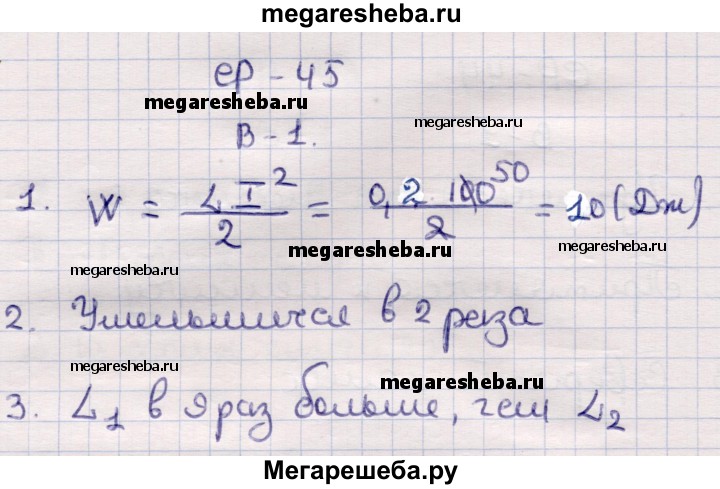 megaresheba.ru
ср - 45
megaresheba.ru
megaresheba.ru
В - 1.
1. W = L I² / 2 = 0,2 · 100 50 / 2 = 10 (Дж)
megaresheba.ru
megaresheba.ru
2. Уменьшится в 2 раза
megaresheba.ru
megaresheba.ru
3. L₁ в 9 раз больше, чем L₂
Мегарешеба.ру